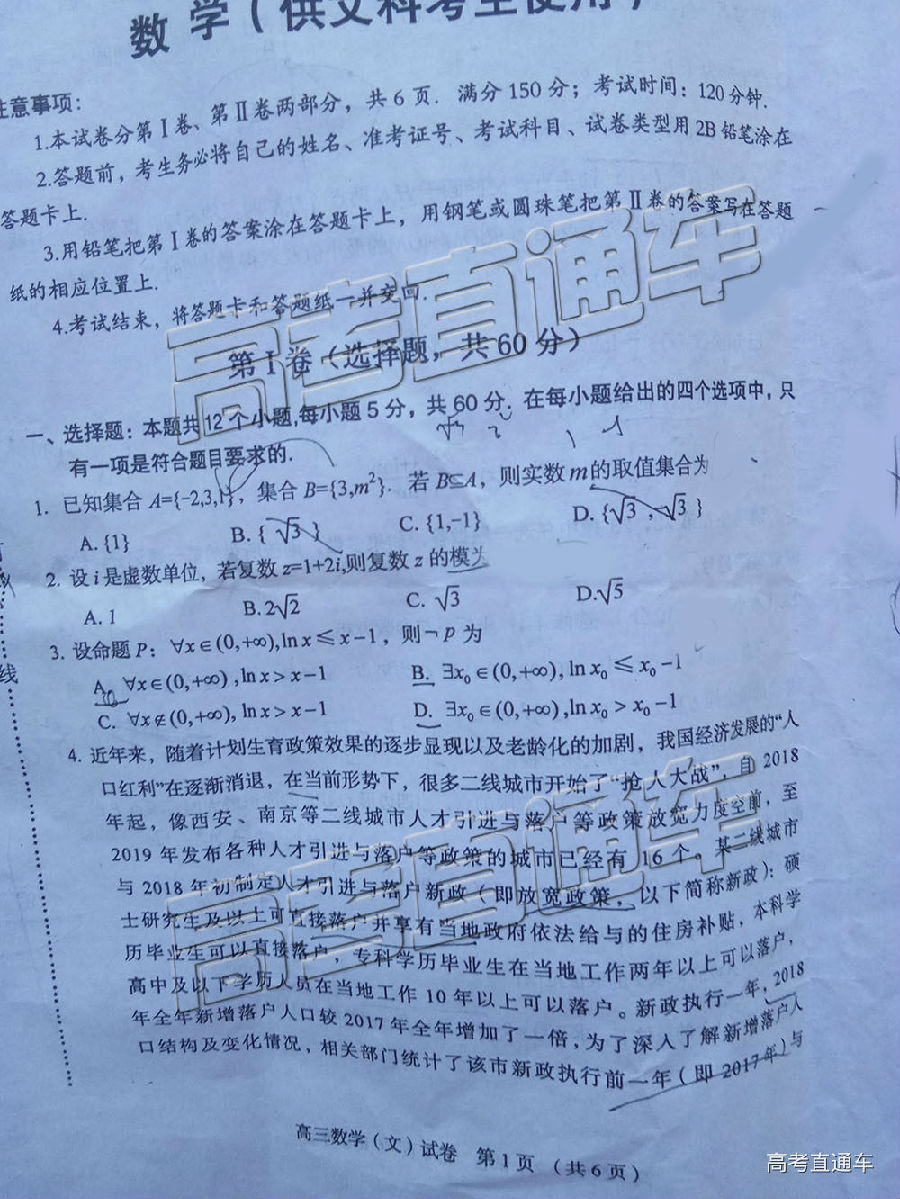 数 学（供文科考生使用）
注意事项：
1.本试卷分第Ⅰ卷、第Ⅱ卷两部分，共6页．满分150分；考试时间：120分钟．
2.答题前，考生务必将自己的姓名、准考证号、考试科目、试卷类型用2B铅笔涂在
答题卡上．
3.用铅笔把第Ⅰ卷的答案涂在答题卡上，用钢笔或圆珠笔把第Ⅱ卷的答案写在答题
纸的相应位置上．
4.考试结束，将答题卡和答题纸一并交回．
第Ⅰ卷（选择题，共60分）
一、选择题：本题共12个小题,每小题5分，共60分．在每小题给出的四个选项中，只
有一项是符合题目要求的．
1. 已知集合 A={-2,3,1}，集合 B={3,m²}．若 B⊆A，则实数 m的取值集合为
A. {1} B. {√3} C. {1,-1} D. {√3，-√3}
2. 设 i 是虚数单位，若复数 z=1+2i,则复数 z 的模为
A. 1 B. 2√2 C. √3 D. √5
3. 设命题 P：∀x∈(0,+∞),ln x≤x-1，则¬p 为
A. ∀x∈(0,+∞),ln x>x-1 B. ∃x₀∈(0,+∞),ln x₀≤x₀-1
C. ∀x∉(0,+∞),ln x>x-1 D. ∃x₀∈(0,+∞),ln x₀>x₀-1
4. 近年来，随着计划生育政策效果的逐步显现以及老龄化的加剧，我国经济发展的“人
口红利”在逐渐消退，在当前形势下，很多二线城市开始了“抢人大战”，自 2018
年起，像西安、南京等二线城市人才引进与落户等政策放宽力度空前，至
2019 年发布各种人才引进与落户等政策的城市已经有 16 个。某二线城市
与 2018 年初制定人才引进与落户新政（即放宽政策，以下简称新政）：硕
士研究生及以上可直接落户并享有当地政府依法给与的住房补贴，本科学
历毕业生可以直接落户，专科学历毕业生在当地工作两年以上可以落户，
高中及以下学历人员在当地工作 10 年以上可以落户。新政执行一年，2018
年全年新增落户人口较 2017 年全年增加了一倍，为了深入了解新增落户人
口结构及变化情况，相关部门统计了该市新政执行前一年（即 2017年）与
高三数学（文）试卷 第1页 （共6页）
线
高考直通车
高考直通车
高考直通车